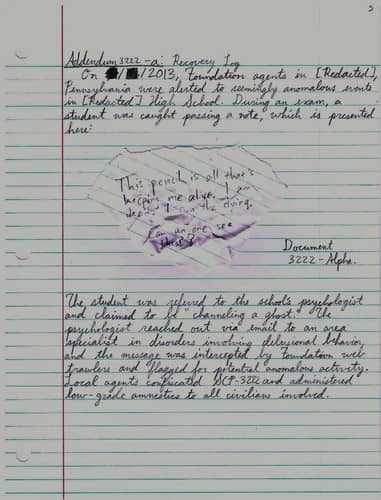 3
Addendum 3222-a: Recovery Log
On / /2013, Foundation agents in [Redacted],
Pennsylvania were alerted to seemingly anomalous events
in [Redacted] High School. During an exam, a
student was caught passing a note, which is presented
here:
This pencil is all that's
keeping me alive. I am
death. I am the dying.
Can anyone see
this?
Document
3222-Alpha.
The student was referred to the school's psychologist
and claimed to be "channeling a ghost". The
psychologist reached out via email to an area
specialist in disorders involving delusional behavior,
and the message was intercepted by Foundation web
crawlers and flagged for potential anomalous activity.
Local agents confiscated SCP-3222 and administered
low-grade amnestics to all civilians involved.